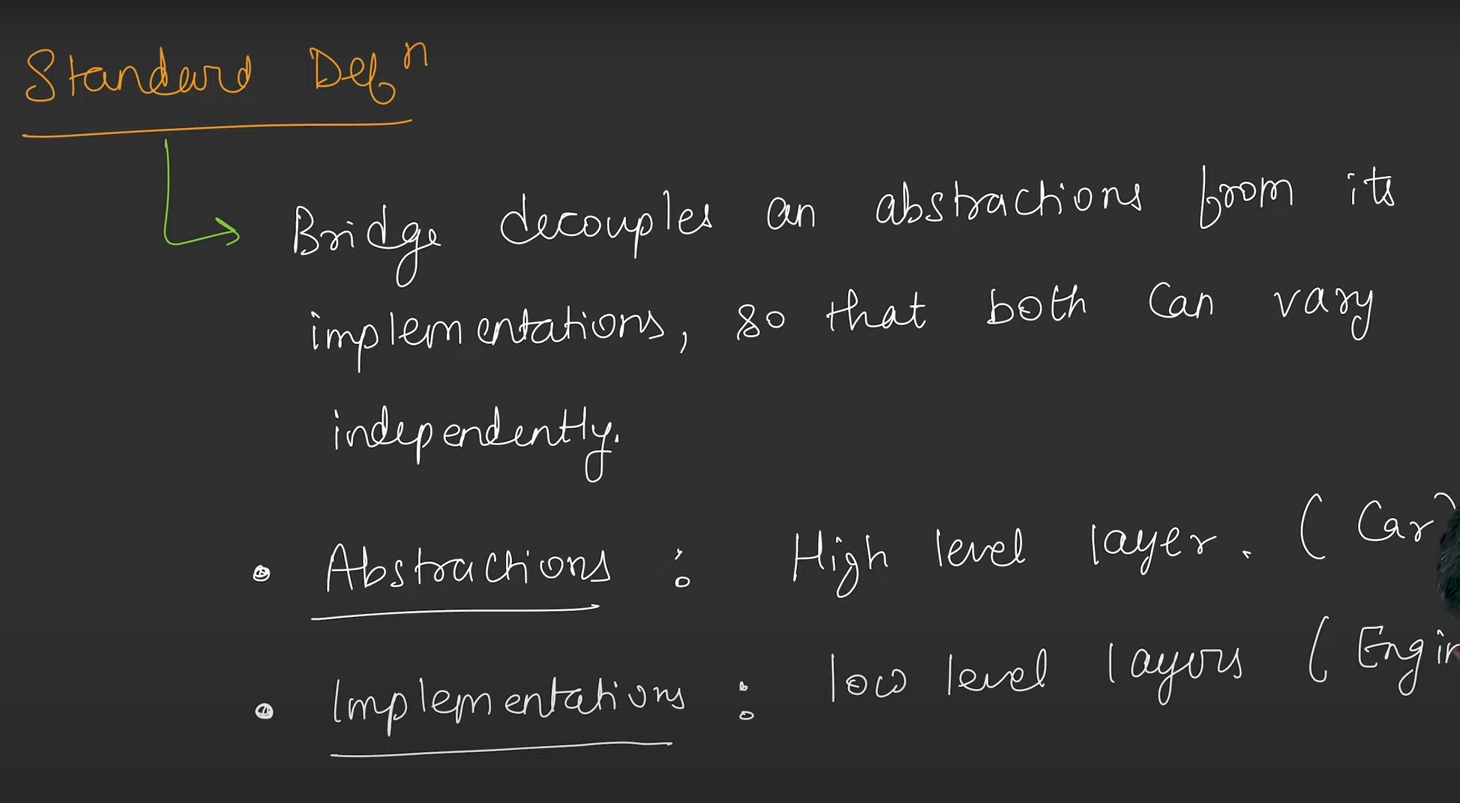 Standard Defⁿ
Bridge decouples an abstractions from its
implementations, so that both can vary
independently.
• Abstractions : High level layer. ( Car)
• Implementations : low level layers ( Engin